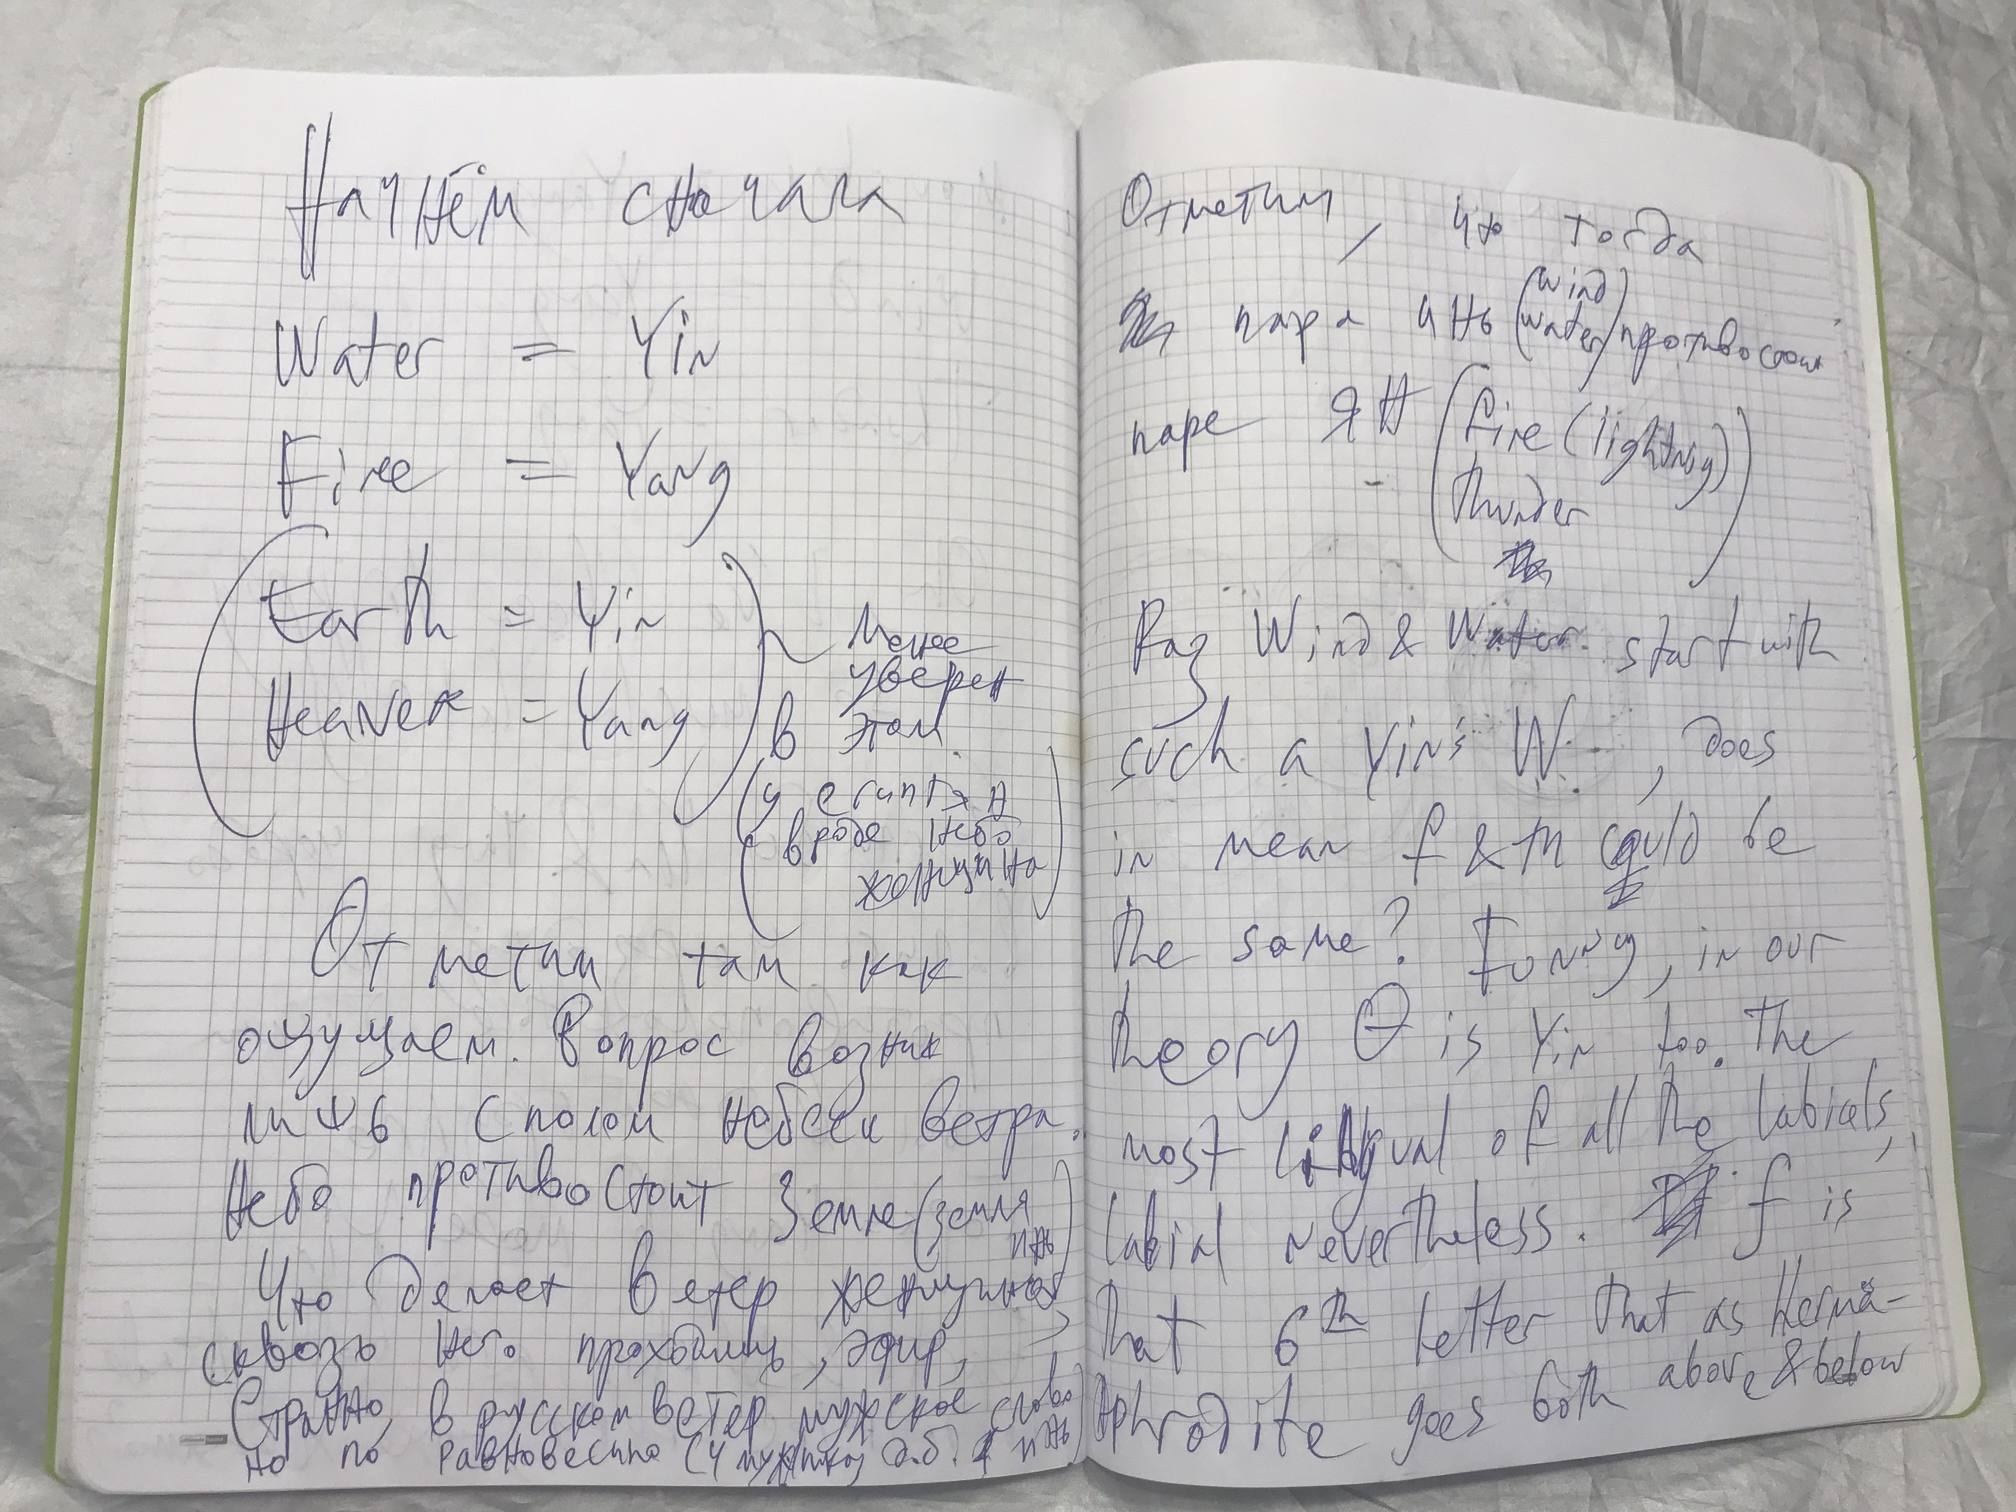 Начнём сначала
Water = Yin
Fire = Yang
(Earth = Yin
Heaven = Yang)
менее
уверен
в этом.
(у египтян
вроде небо
женщина)
Отметим там как
ощущаем. Вопрос возник
лишь с полом небес и ветра.
Небо противостоит Земле (земля
инь)
Что делает ветер женщиной
сквозь него проходишь, эфир,
Странно, в русском ветер мужское слово
но по равновесию (4 мужских д.б. инь)
Отметим, что тогда
пара инь (wind
water) противостоит
паре ЯН (fire (lightning)
thunder)
Раз Wind & Water start with
such a Yin's W, does
in mean f & th could be
the same? Funny, in our
theory Θ is Yin too. The
most lingual of all the labials,
labial nevertheless. f is
that 6th letter that as Herma-
Aphrodite goes both above & below